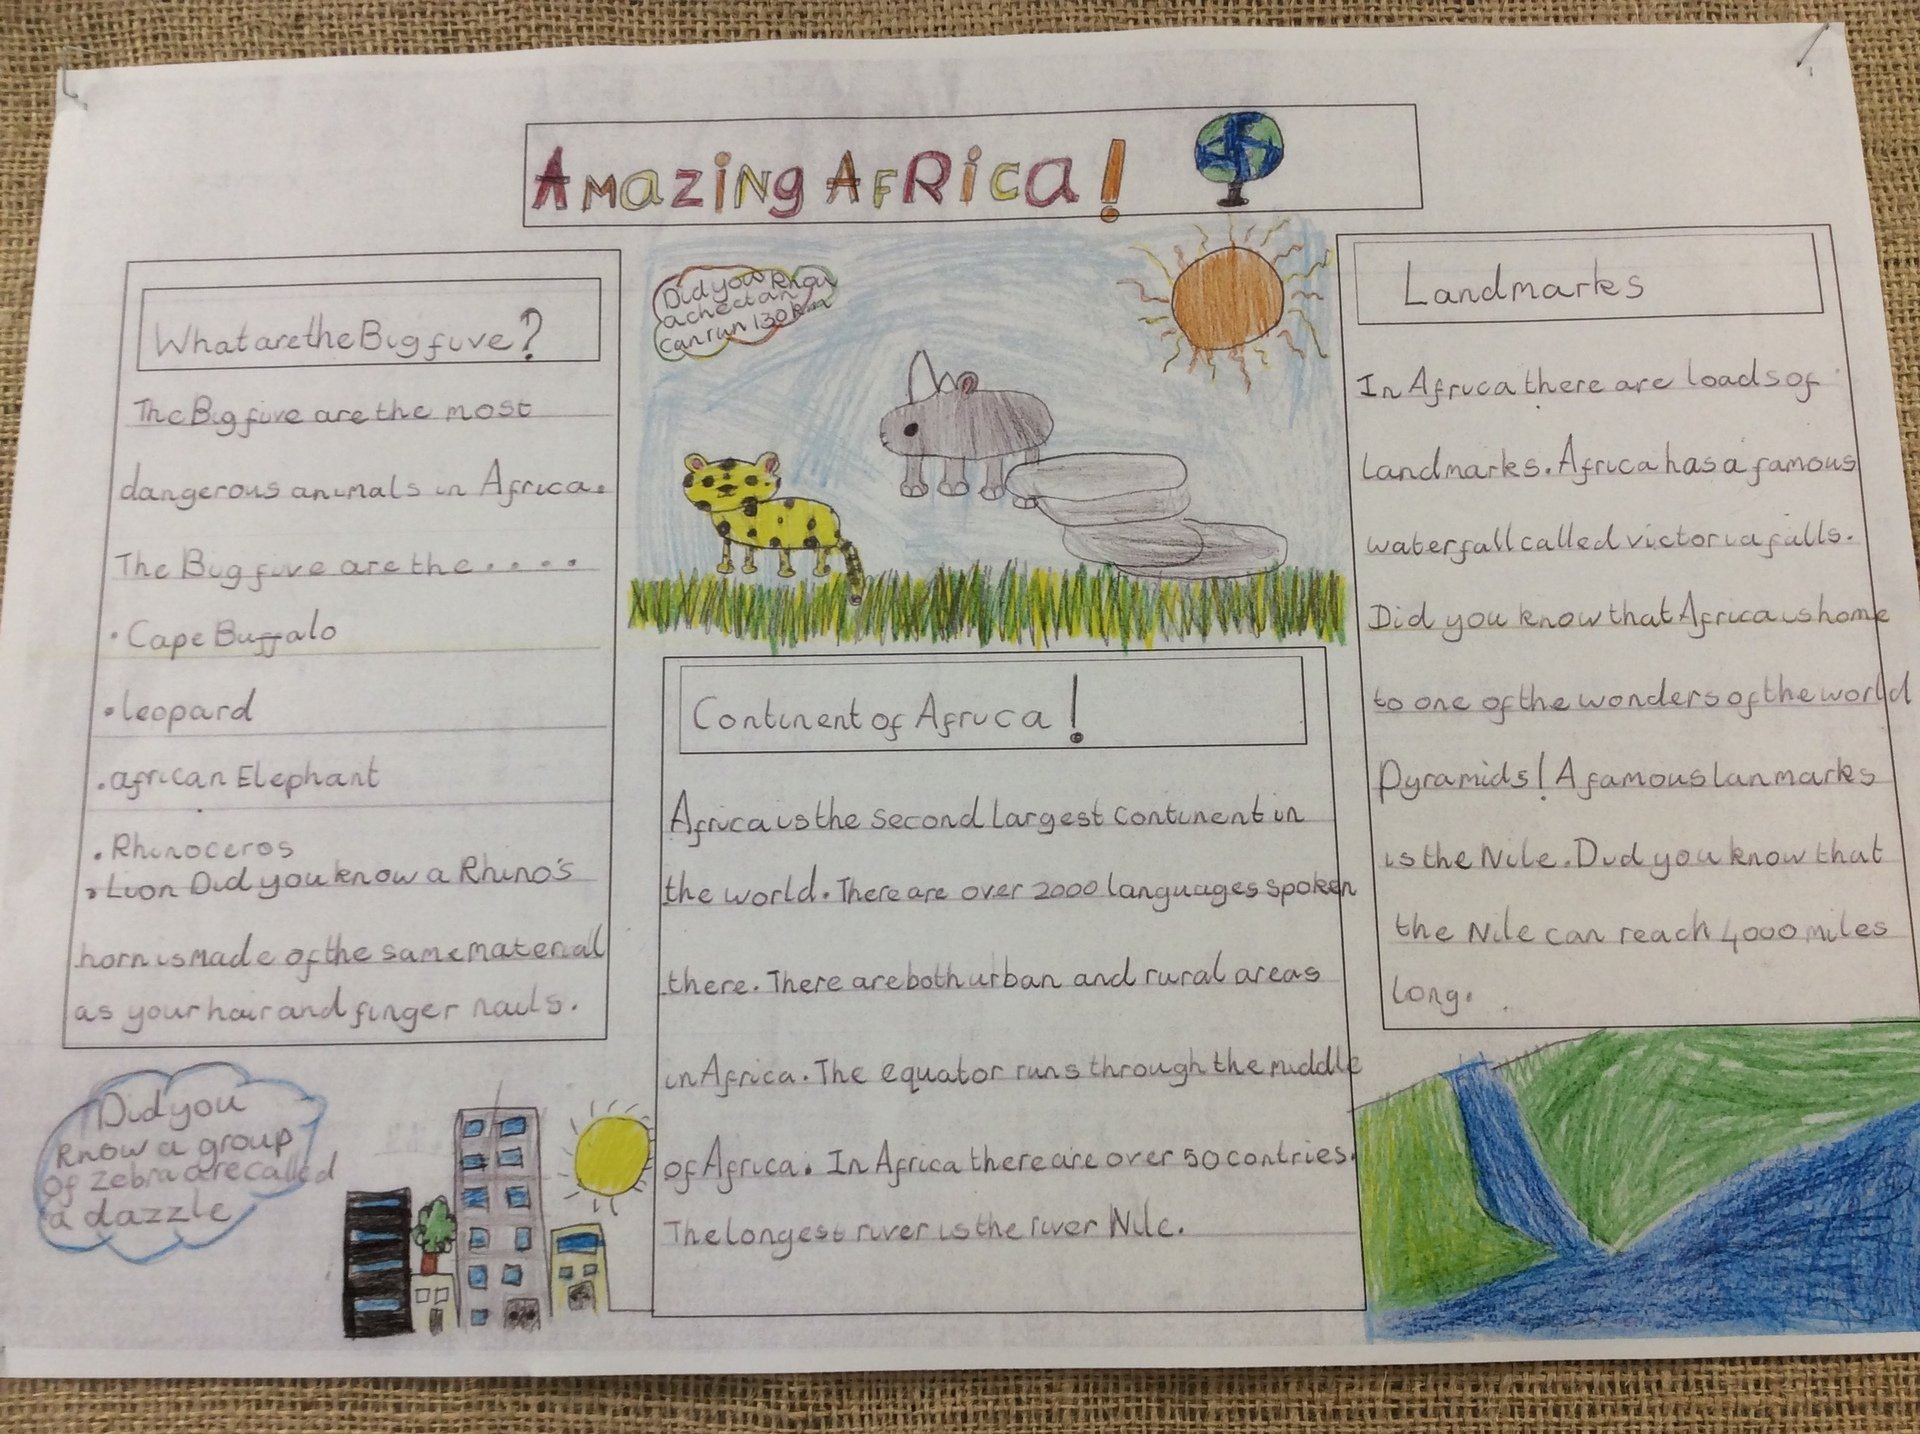 Amazing Africa!
What are the Big five?
The Big five are the most
dangerous animals in Africa.
The Big five are the....
• Cape Buffalo
• leopard
• african Elephant
• Rhinoceros
• Lion Did you know a Rhino's
horn is made of the same material
as your hair and finger nails.
Did you
know a group
of zebra are called
a dazzle
Did you know
a cheetah
can run 130km
Continent of Africa!
Africa is the second largest continent in
the world. There are over 2000 languages spoken
there. There are both urban and rural areas
in Africa. The equator runs through the middle
of Africa. In Africa there are over 50 contries.
The longest river is the river Nile.
Landmarks
In Africa there are loads of
landmarks. Africa has a famous
waterfall called victoria falls.
Did you know that Africa is home
to one of the wonders of the world
pyramids! A famous lanmarks
is the Nile. Did you know that
the Nile can reach 4000 miles
long.